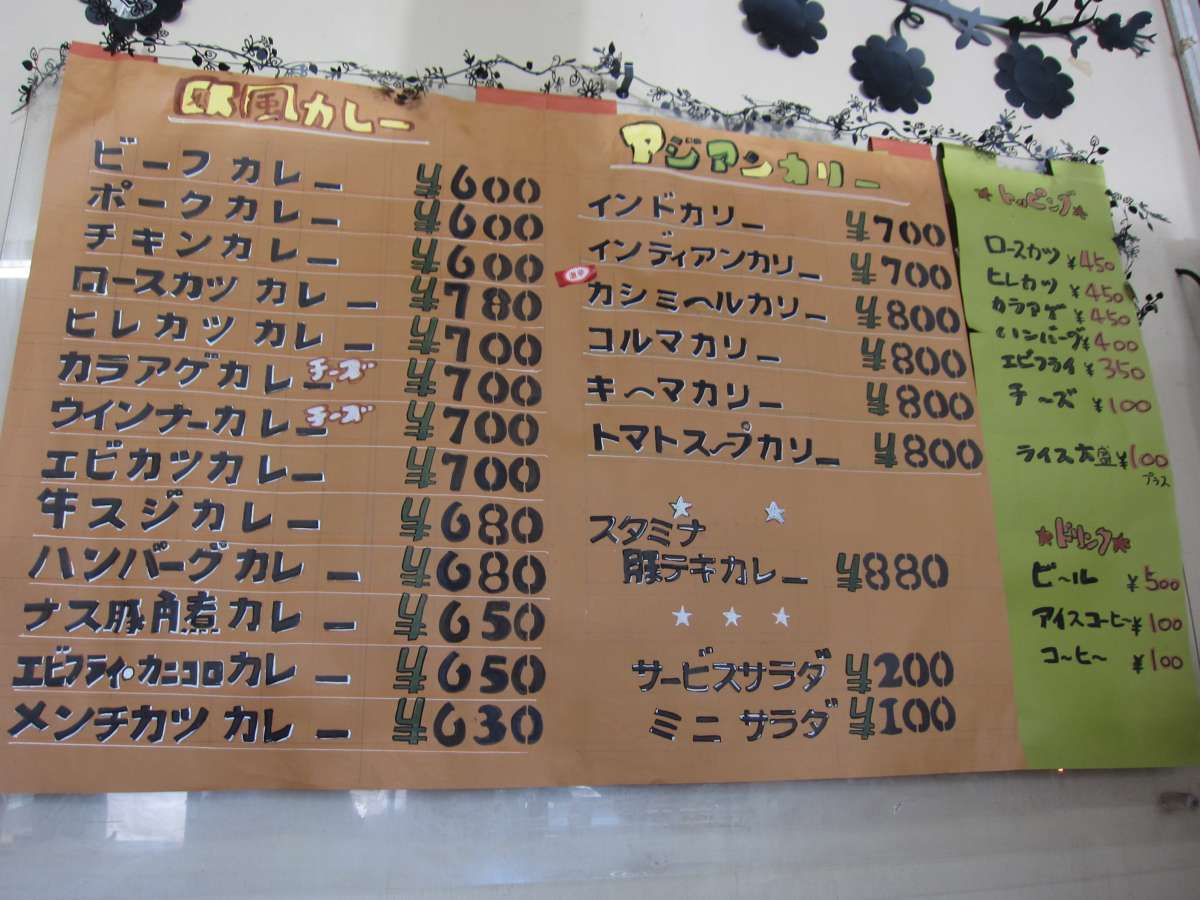 欧風カレー
ビーフカレー ¥600
ポークカレー ¥600
チキンカレー ¥600
ロースカツカレー ¥780
ヒレカツカレー ¥700
カラアゲカレー チーズ ¥700
ウインナーカレー チーズ ¥700
エビカツカレー ¥700
牛スジカレー ¥680
ハンバーグカレー ¥680
ナス豚角煮カレー ¥650
エビフライ・カニコロカレー ¥650
メンチカツカレー ¥630
アジアンカリー
インドカリー ¥700
インディアンカリー ¥700
激辛 カシミールカリー ¥800
コルマカリー ¥800
キーマカリー ¥800
トマトスープカリー ¥800
スタミナ
豚テキカレー ¥880
サービスサラダ ¥200
ミニサラダ ¥100
★トッピング★
ロースカツ ¥450
ヒレカツ ¥450
カラアゲ ¥450
ハンバーグ ¥400
エビフライ ¥350
チーズ ¥100
ライス大盛 ¥100
プラス
★ドリンク★
ビール ¥500
アイスコーヒー ¥100
コーヒー ¥100